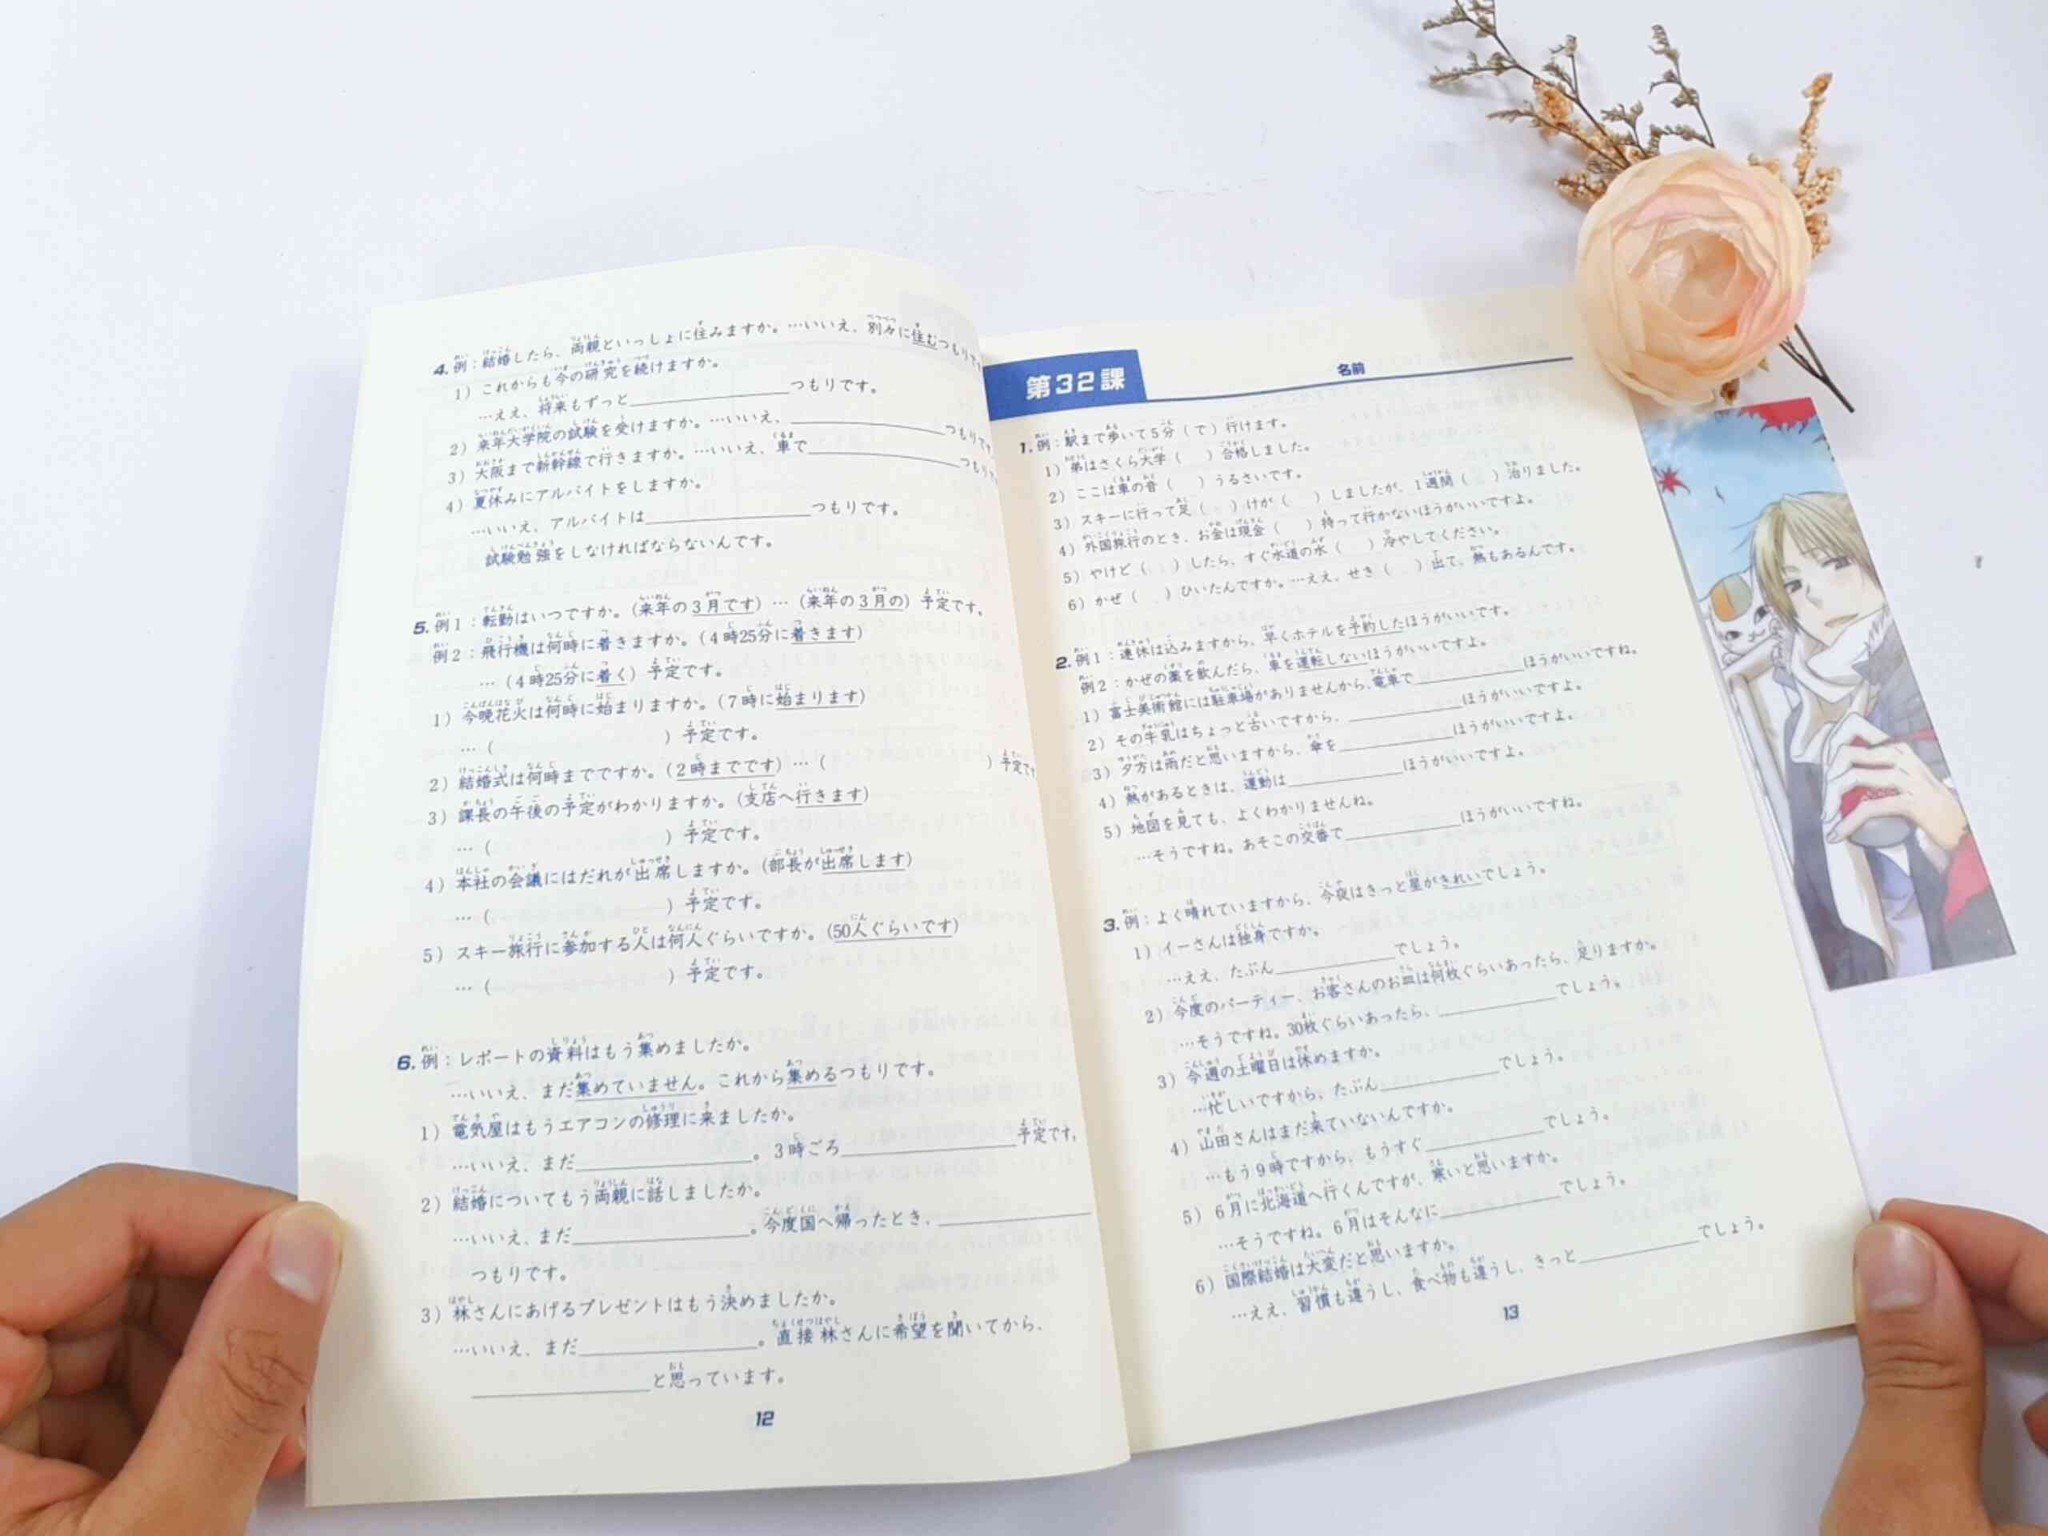 4. 例：結婚したら、両親といっしょに住みますか。…いいえ、別々に住むつもりで
1）これからも今の研究を続けますか。
…ええ、将来もずっと＿＿＿＿つもりです。
2）来年大学院の試験を受けますか。…いいえ、＿＿＿＿つもりです
3）大阪まで新幹線で行きますか。…いいえ、車で＿＿＿＿つもり
4）夏休みにアルバイトをしますか。
…いいえ、アルバイトは＿＿＿＿つもりです。
試験勉強をしなければならないんです。
5. 例1：転勤はいつですか。（来年の3月です）…（来年の3月の）予定です。
例2：飛行機は何時に着きますか。（4時25分に着きます）
…（4時25分に着く）予定です。
1）今晩花火は何時に始まりますか。（7時に始まります）
…（　　　　）予定です。
2）結婚式は何時までですか。（2時までです）…（　　　　）予定です
3）課長の午後の予定がわかりますか。（支店へ行きます）
…（　　　　）予定です。
4）本社の会議にはだれが出席しますか。（部長が出席します）
…（　　　　）予定です。
5）スキー旅行に参加する人は何人ぐらいですか。（50人ぐらいです）
…（　　　　）予定です。
6. 例：レポートの資料はもう集めましたか。
…いいえ、まだ集めていません。これから集めるつもりです。
1）電気屋はもうエアコンの修理に来ましたか。
…いいえ、まだ＿＿＿＿。3時ごろ＿＿＿＿予定です。
2）結婚についてもう両親に話しましたか。
…いいえ、まだ＿＿＿＿。今度国へ帰ったとき、＿＿＿＿
つもりです。
3）林さんにあげるプレゼントはもう決めましたか。
…いいえ、まだ＿＿＿＿。直接林さんに希望を聞いてから、
＿＿＿＿と思っています。
12
第32課
名前
1. 例：駅まで歩いて5分（で）行けます。
1）弟はさくら大学（　）合格しました。
2）ここは車の音（　）うるさいです。
3）スキーに行って足（　）けが（　）しましたが、1週間（　）治りました。
4）外国旅行のとき、お金は現金（　）持って行かないほうがいいですよ。
5）やけど（　）したら、すぐ水道の水（　）冷やしてください。
6）かぜ（　）ひいたんですか。…ええ、せき（　）出て、熱もあるんです。
2. 例1：連休は込みますから、早くホテルを予約したほうがいいです。
例2：かぜの薬を飲んだら、車を運転しないほうがいいですよ。
1）富士美術館には駐車場がありませんから、電車で＿＿＿＿ほうがいいですね。
2）その牛乳はちょっと古いですから、＿＿＿＿ほうがいいですよ。
3）夕方は雨だと思いますから、傘を＿＿＿＿ほうがいいですよ。
4）熱があるときは、運動は＿＿＿＿ほうがいいですよ。
5）地図を見ても、よくわかりませんね。
…そうですね。あそこの交番で＿＿＿＿ほうがいいですね。
3. 例：よく晴れていますから、今夜はきっと星がきれいでしょう。
1）イーさんは独身ですか。
…ええ、たぶん＿＿＿＿でしょう。
2）今度のパーティー、お客さんのお皿は何枚ぐらいあったら、足りますか。
…そうですね。30枚ぐらいあったら、＿＿＿＿でしょう。
3）今週の土曜日は休めますか。
…忙しいですから、たぶん＿＿＿＿でしょう。
4）山田さんはまだ来ていないんですか。
…もう9時ですから、もうすぐ＿＿＿＿でしょう。
5）6月に北海道へ行くんですが、寒いと思いますか。
…そうですね。6月はそんなに＿＿＿＿でしょう。
6）国際結婚は大変だと思いますか。
…ええ、習慣も違うし、食べ物も違うし、きっと＿＿＿＿でしょう。
13